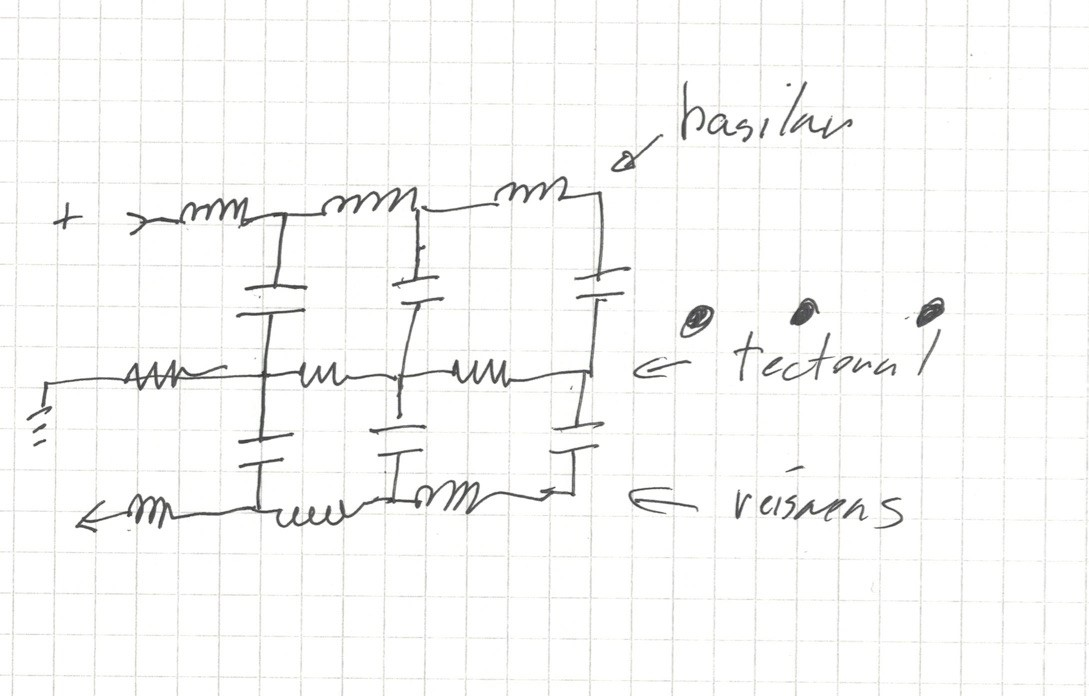 basilar
+
tectoral
reisners